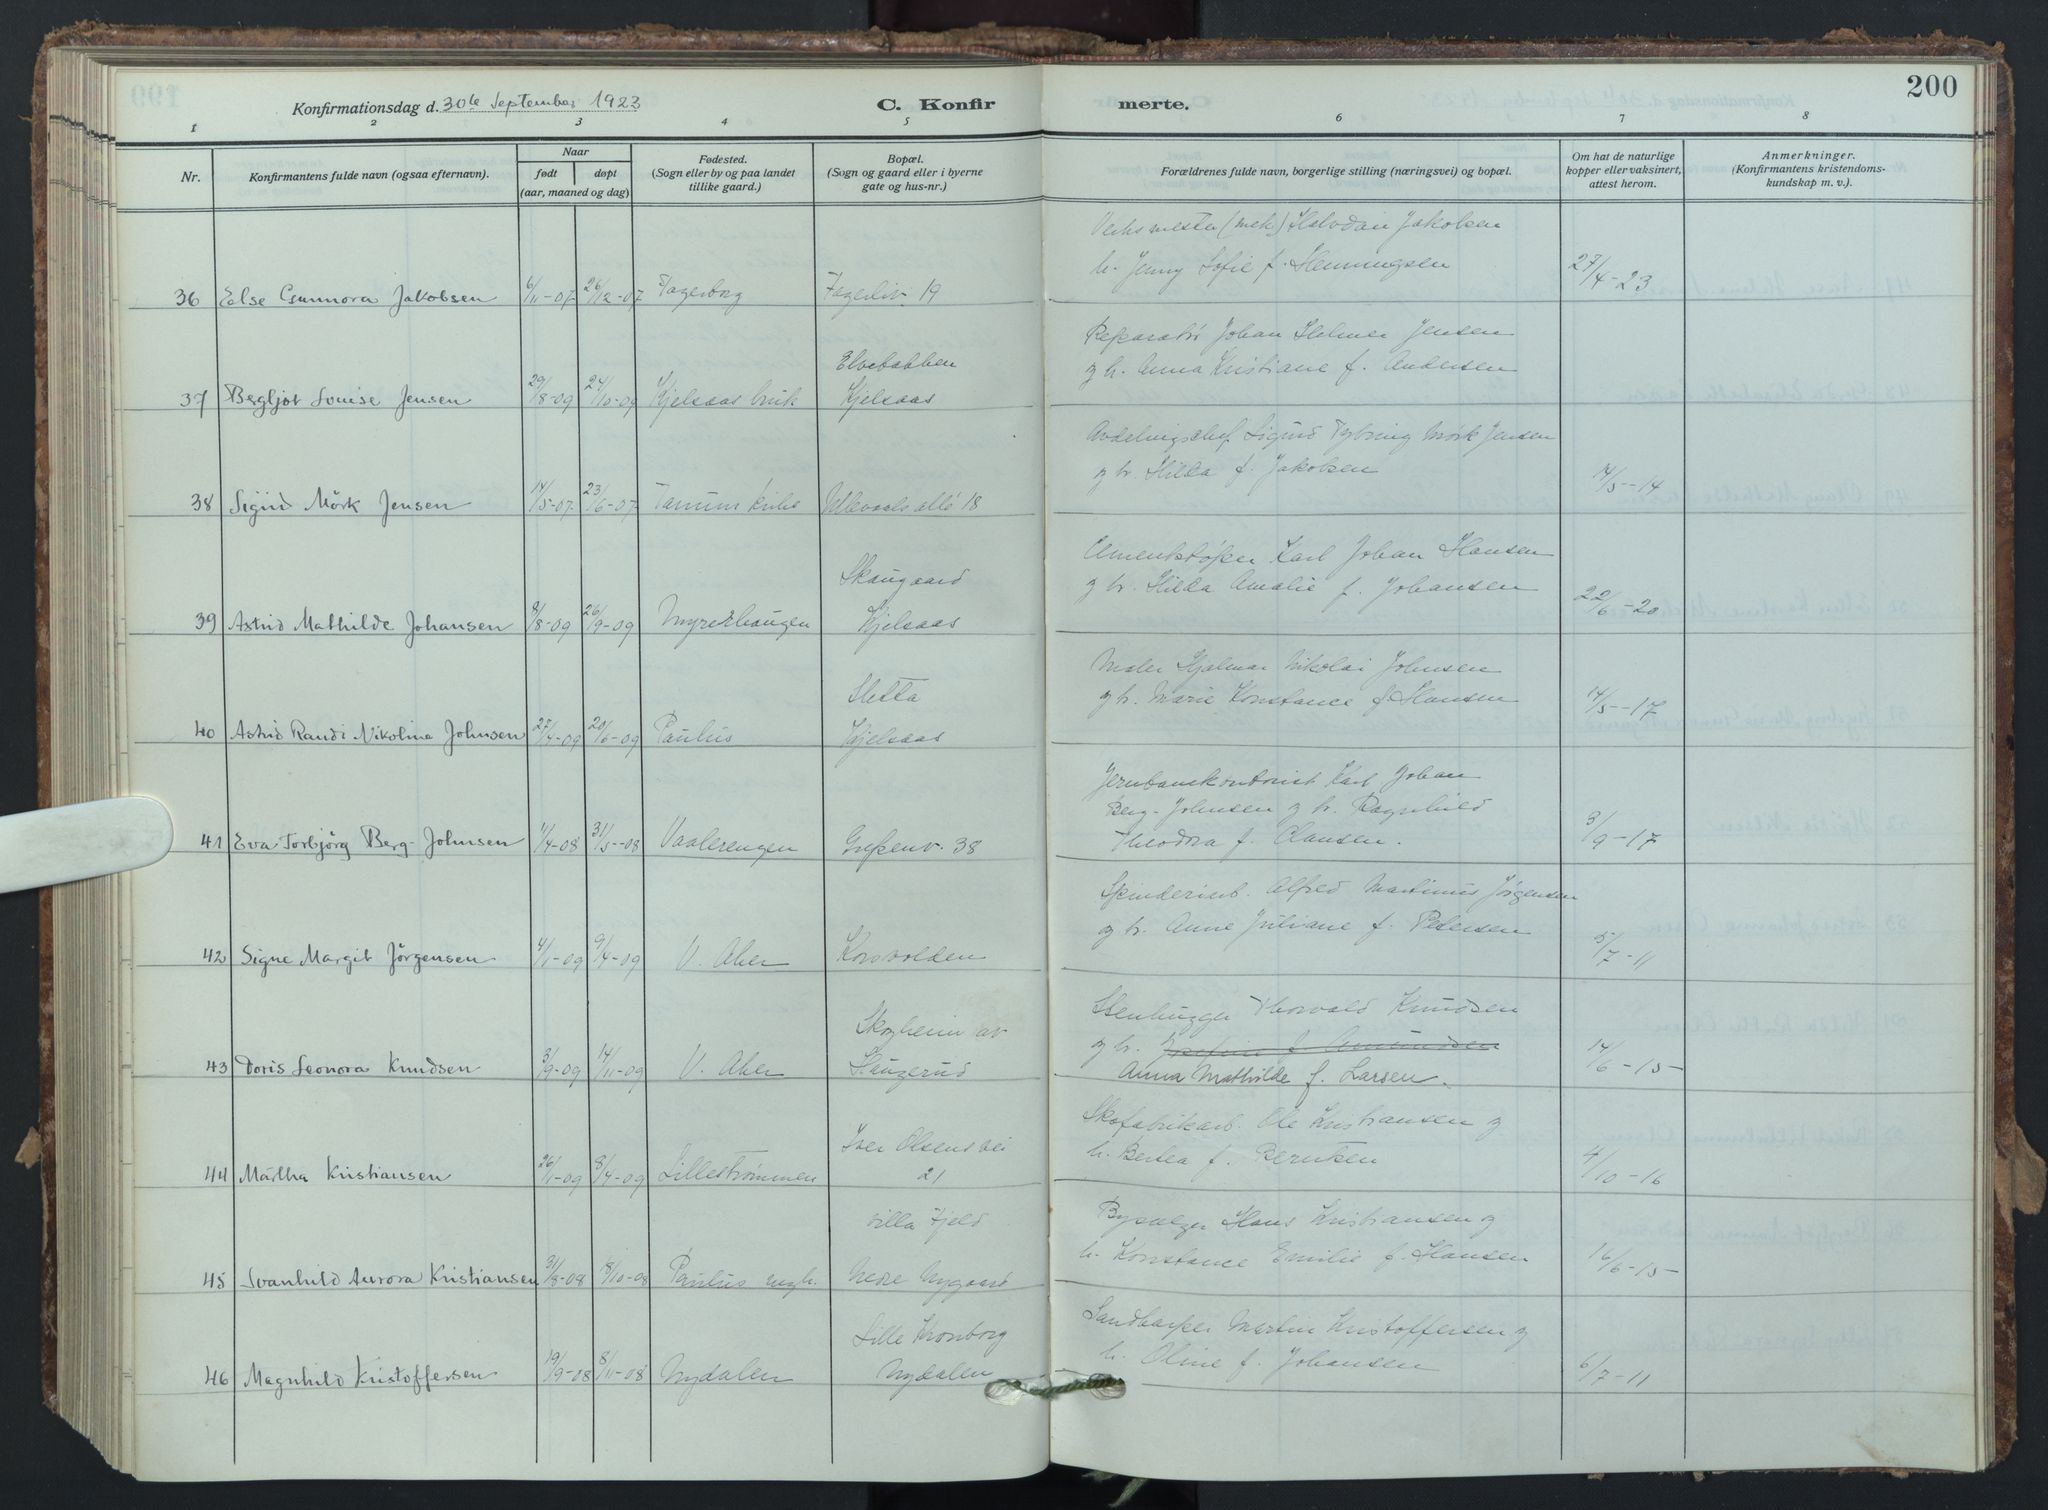 200
Konfirmationsdag d. 30te September 1923
C. Konfir merte.
1 2 3 4 5 6 7 8
Nr.
Konfirmantens fulde navn (ogsaa efternavn).
Naar
født
døpt
(aar, maaned og dag)
Fødested.
(Sogn eller by og paa landet
tillike gaard.)
Bopæl.
(Sogn og gaard eller i byerne
gate og hus-nr.)
Forældrenes fulde navn, borgerlige stilling (næringsvei) og bopæl.
Om hat de naturlige
kopper eller vaksinert,
attest herom.
Anmerkninger.
(Konfirmantens kristendoms-
kundskap m. v.).
Verksmester (mek) Halvdan Jakobsen
h. Jenny Sofie f. Henningsen
36 Else Gunnora Jakobsen 6/11-07 26/12-07 Fagerborg Fagerliv. 19 27/4-23
Reparatør Johan Helmer Jensen
Elvebakken
og h. Anna Kristiane f. Andersen
37 Bergljot Louise Jensen 29/8-09 24/10-09 Kjelsaas bruk Kjelsaas
Avdelingschef Sigurd Tybring Mørk Jensen
og h. Hilda f. Jakobsen
38 Sigrid Mörk Jensen 14/5-07 23/6-07 Tanum kirke Ullevaals allé 18 14/5-14
Karl Johan Hansen
Skaugaard
og h. Hilda Amalie f. Johansen
39 Astrid Mathilde Johansen 8/8-09 26/9-09 Myrerhaugen Kjelsaas 22/6-20
Maler Hjalmar Nikolai Johnsen
Sletta
og h. Marie Konstance f. Hansen
40 Astrid Randi Nikoline Johnsen 27/4-09 20/6-09 Paulus Kjelsaas 14/5-17
Jernbanekontorist Karl Johan
Berg-Johnsen og h. Ragnhild
Theodora f. Clausen.
41 Eva Torbjörg Berg-Johnsen 11/4-08 31/5-08 Vaalerengen Grefsenv. 38 3/9-17
Spinderiarb. Alfred Martinius Jørgensen
og h. Anne Juliane f. Petersen
42 Signe Margit Jörgensen 4/1-09 9/4-09 V. Aker Korsvolden 5/7-11
Stenhugger Thorvald Knudsen
Skogheim av
og h. Josefine f. Amundsen
Anna Mathilde f. Larsen.
43 Doris Leonora Knudsen 3/9-09 14/11-09 V. Aker Haugerud 14/6-15
Skofabrikarb. Ole Kristiansen og
Iver Olsens vei
h. Bertea f. Berntsen
44 Martha Kristiansen 26/1-09 8/4-09 Lillestrømmen 21 4/10-16
Villa Fjeld
Hans Kristiansen og
h. Konstance Emilie f. Hansen
45 Svanhild Aurora Kristiansen 31/8-08 18/10-08 Paulus mgh. Nedre Nygaard 16/6-15
Lille Kronborg
Martin Kristoffersen og
h. Oline f. Johansen
46 Magnhild Kristoffersen 19/9-08 8/11-08 Nydalen Nydalen 6/7-11